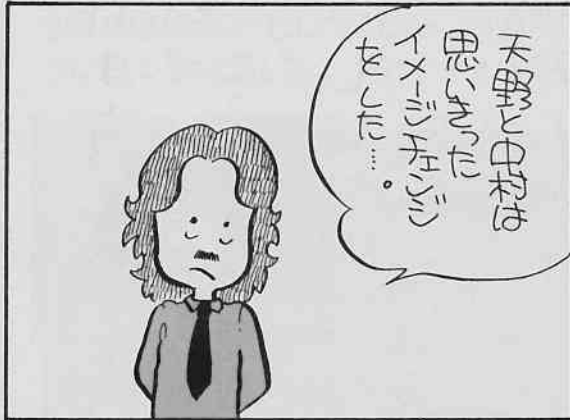 天野と中村は
思いきった
イメージチェンジ
をした…。